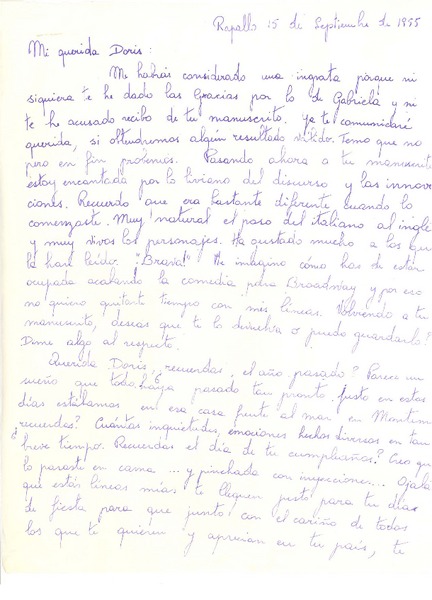 Rapallo 15 de Septiembre de 1955
Mi querida Doris:
Me habrás considerado una ingrata porque ni
siquiera te he dado las Gracias por lo de Gabriela y ni
te he acusado recibo de tu manuscrito. Ya te comunicaré
querida, si obtudremos algún resultado Temo que no
pero en fin probemos. Pasando ahora a tu manuscrito
estoy encantada por lo liviano del discurso y las innova
ciones. Recuerdo que era bastante diferente cuando lo
comenzaste. Muy natural el paso del italiano al inglés
y muy vivos los personajes. Ha gustado mucho a los que
la han leído. "Brava!" Me imagino cómo has de estar
ocupada acabando la comedia para Broadway y por eso
no quiero quitarte tiempo con mis líneas. Volviendo a tu
manuscrito, deseas que te lo devuelva o puedo guardarlo?
Dime algo al respecto.
Querida Doris, recuerdas, el año pasado? Parece un
sueño que todo haya pasado tan pronto. Justo en estos
días estábamos en esa casa frente al mar en
recuerdas? Cuántas inquietudes, emociones hechos diversos en tan
breve tiempo. Recuerdas el día de tu cumpleaños? Creo que
lo pasaste en cama ... y pinchada con inyecciones ... Ojalá
que estas líneas mías te lleguen justo para tu día
de fiesta para que junto con el cariño de todos
los que te quieren y aprecian en tu país, te